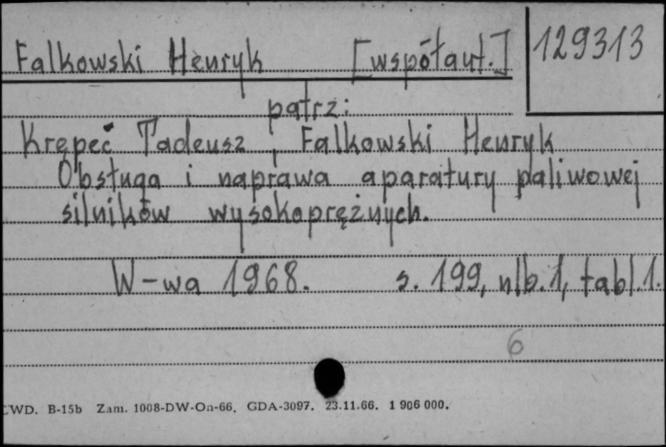 Falkowski Henryk [współaut.] 129313
patrz:
Krępeć Tadeusz, Falkowski Henryk
Obsługa i naprawa aparatury paliwowej
silników wysokoprężnych.
W-wa 1968. s. 199, nlb. 1, tabl. 1.
6
CWD. B-15b Zam. 1008-DW-On-66. GDA-3097. 23.11.66. 1 906 000.